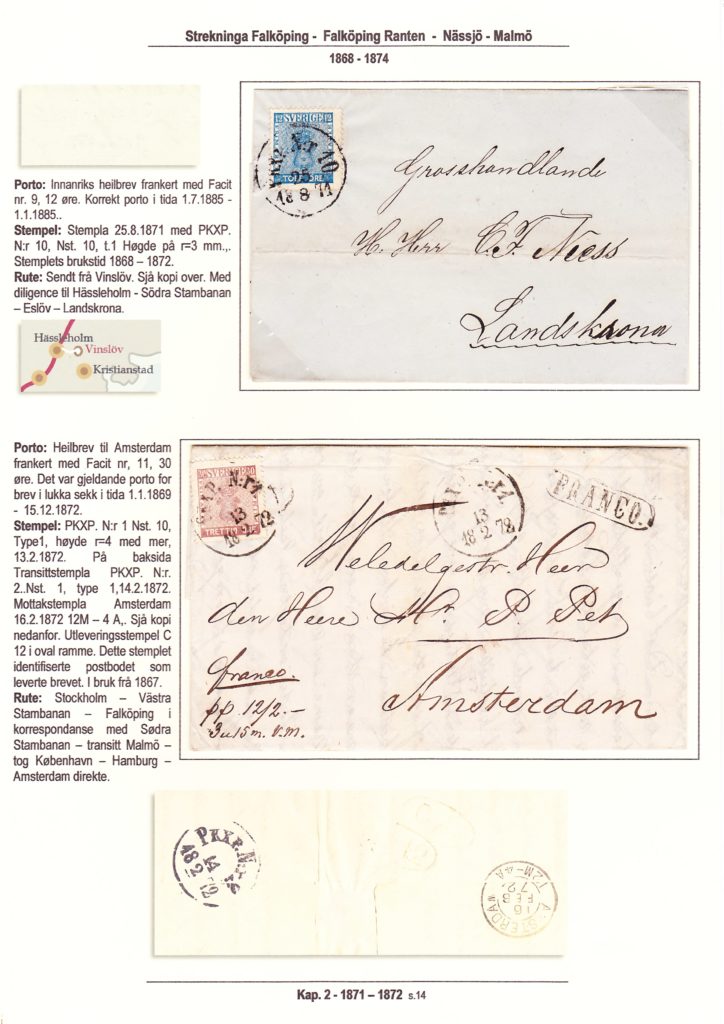 Strekninga Falköping - Falköping Ranten - Nässjö - Malmö
1868 - 1874
Porto: Innanriks heilbrev frankert med Facit
nr. 9, 12 øre. Korrekt porto i tida 1.7.1885 -
1.1.1885..
Stempel: Stempla 25.8.1871 med PKXP.
N:r 10, Nst. 10, t.1 Høgde på r=3 mm.,.
Stemplets brukstid 1868 – 1872.
Rute: Sendt frå Vinslöv. Sjå kopi over. Med
diligence til Hässleholm - Södra Stambanan
– Eslöv – Landskrona.
Hässleholm
Vinslöv
Kristianstad
12 SVERIGE 12
TOLF ÖRE
PKXP. N:r 10
25
18 8 71
Grosshandlande
H. Herr C. F. Neess
Landskrona
Porto: Heilbrev til Amsterdam
frankert med Facit nr, 11, 30
øre. Det var gjeldande porto for
brev i lukka sekk i tida 1.1.1869
- 15.12.1872.
Stempel: PKXP. N:r 1 Nst. 10,
Type1, høyde r=4 med mer,
13.2.1872. På baksida
Transittstempla PKXP. N:r.
2..Nst. 1, type 1,14.2.1872.
Mottakstempla Amsterdam
16.2.1872 12M – 4 A,. Sjå kopi
nedanfor. Utleveringsstempel C
12 i oval ramme. Dette stemplet
identifiserte postbodet som
leverte brevet. I bruk frå 1867.
Rute: Stockholm – Västra
Stambanan – Falköping i
korrespondanse med Sødra
Stambanan – transitt Malmö –
tog København – Hamburg –
Amsterdam direkte.
SVERIGE
PKXP. N:r 1
13
18 2 72
PKXP. N:r 1.
13
18 2 72
FRANCO.
Weledelgestr. Heer
den Heere Mr. P. Pet
Amsterdam
franco.
pp. 12/2.-
PKXP. N:r 2
14
18 2 72
AMSTERDAM
16
FEB
72
12M-4A
Kap. 2 - 1871 – 1872 s.14